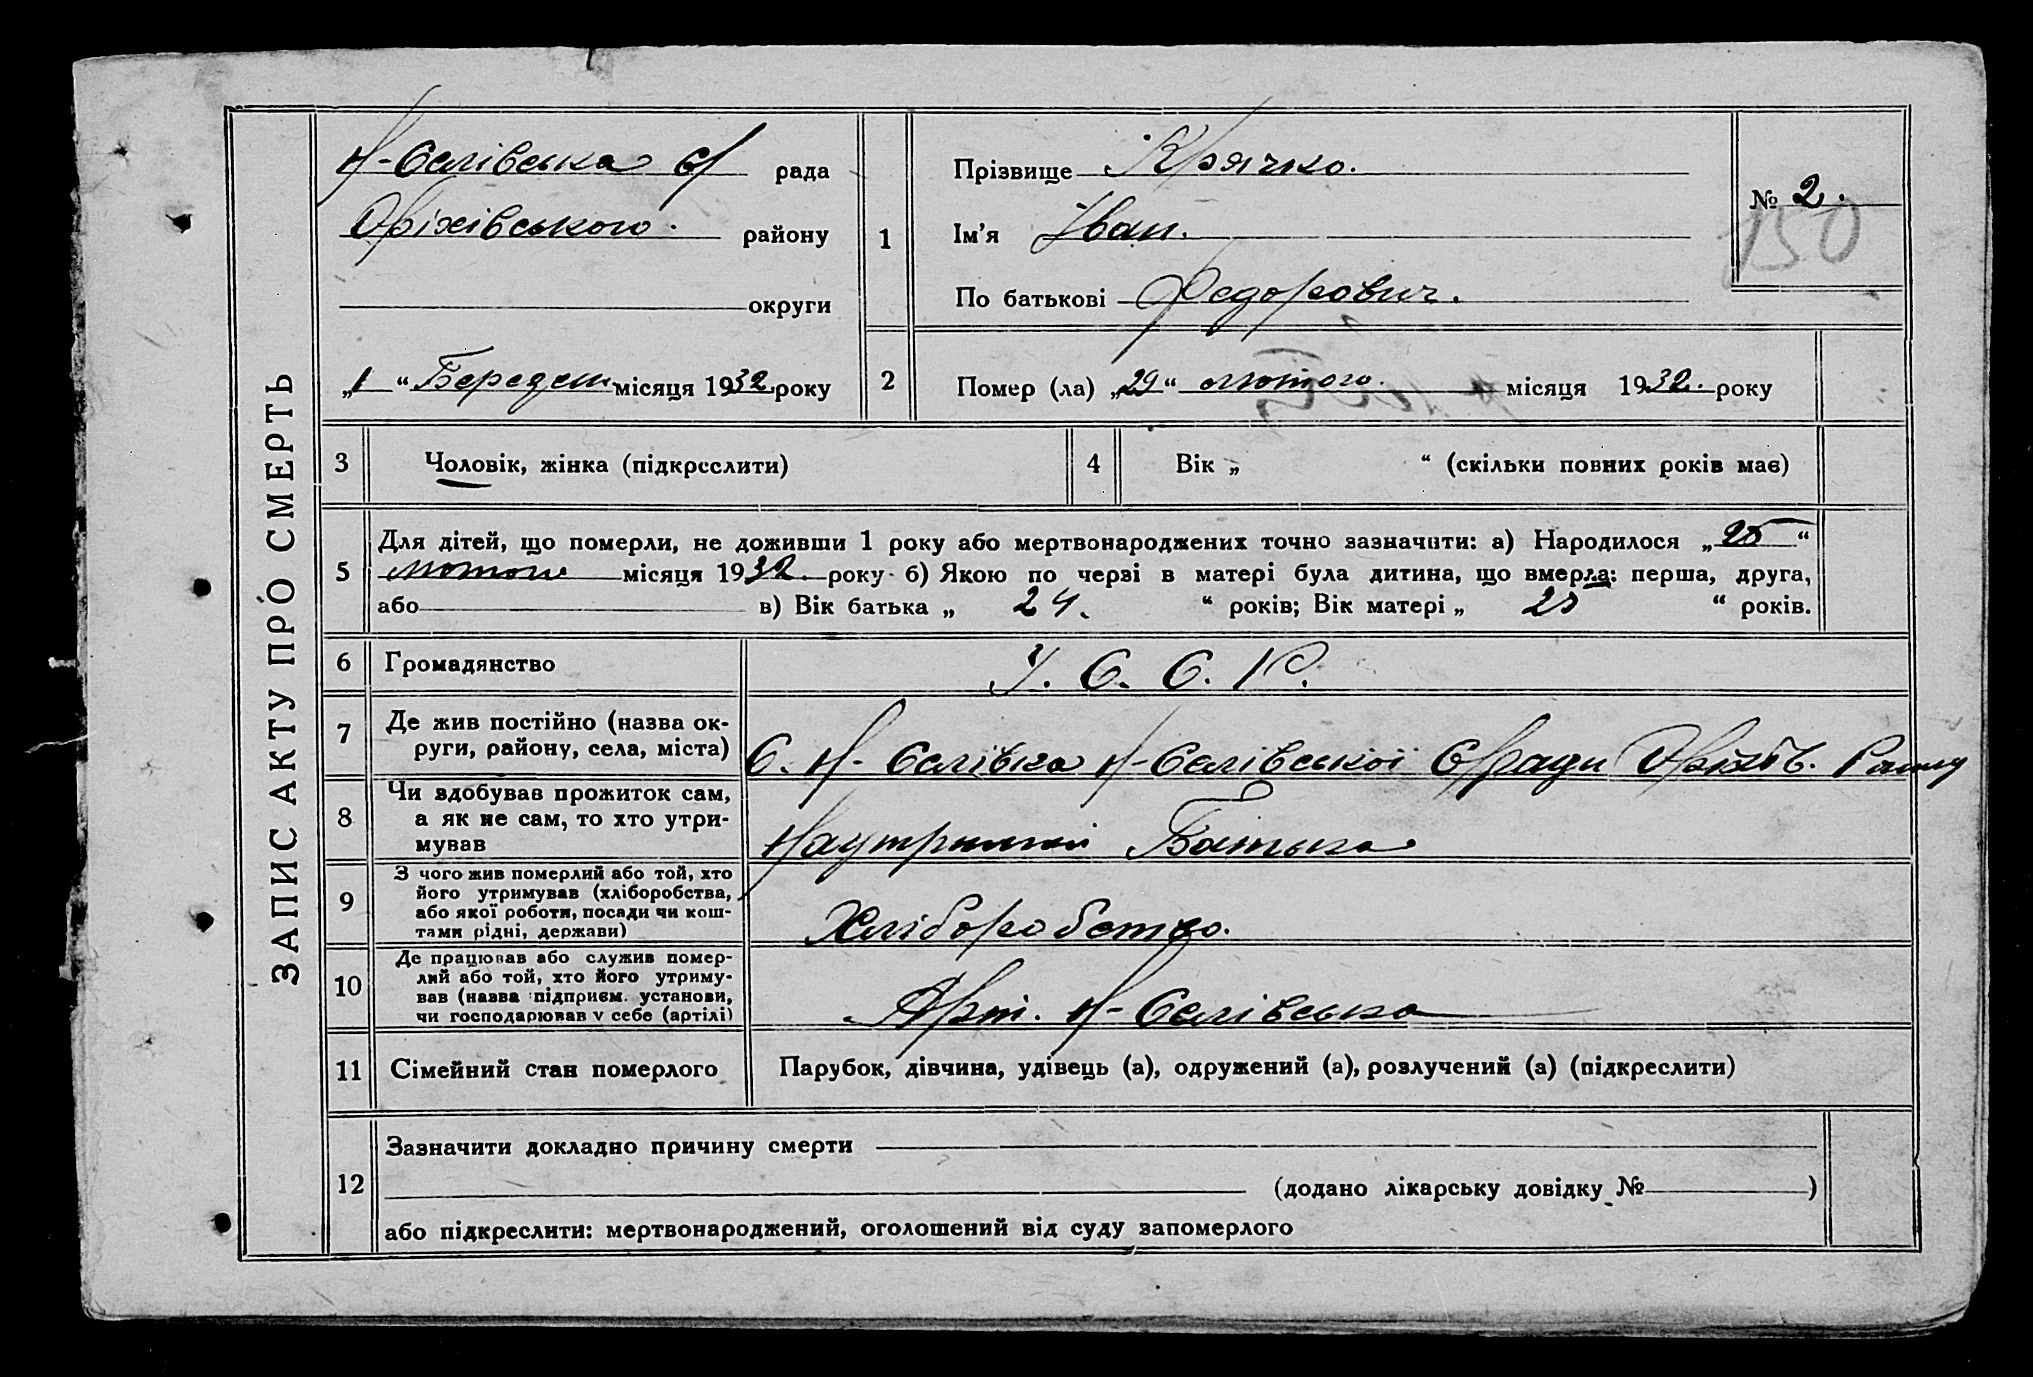 ЗАПИС АКТУ ПРО СМЕРТЬ
Н-Єлівська С/ рада
Оріхівського району
округи
„1“ Березень місяця 1932 року
1
Прізвище Крячко.
Ім'я Іван.
По батькові Федорович.
№ 2.
150
2
Помер (ла) „29“ лютого. місяця 1932. року
3
Чоловік, жінка (підкреслити)
4
Вік „ “ (скільки повних років має)
5
Для дітей, що померли, не доживши 1 року або мертвонароджених точно зазначити: а) Народилося „25“
лютого місяця 1932. року б) Якою по черзі в матері була дитина, що вмерла: перша, друга,
або в) Вік батька „ 24. “ років; Вік матері „ 25 “ років.
6
Громадянство
У. С. С. Р.
7
Де жив постійно (назва ок-
руги, району, села, міста)
С. Н-Єлівка Н-Єлівської С/ради Оріхів. Району
8
Чи здобував прожиток сам,
а як не сам, то хто утри-
мував
На утриманні Батька
9
З чого жив померлий або той, хто
його утримував (хліборобства,
або якої роботи, посади чи кош-
тами рідні, держави)
Хліборобство.
10
Де працював або служив помер-
лий або той, хто його утриму-
вав (назва підприєм. установи,
чи господарював у себе (артілі)
Арт. Н-Єлівська
11
Сімейний стан померлого
Парубок, дівчина, удівець (а), одружений (а), розлучений (а) (підкреслити)
12
Зазначити докладно причину смерти
(додано лікарську довідку № )
або підкреслити: мертвонароджений, оголошений від суду запомерлого